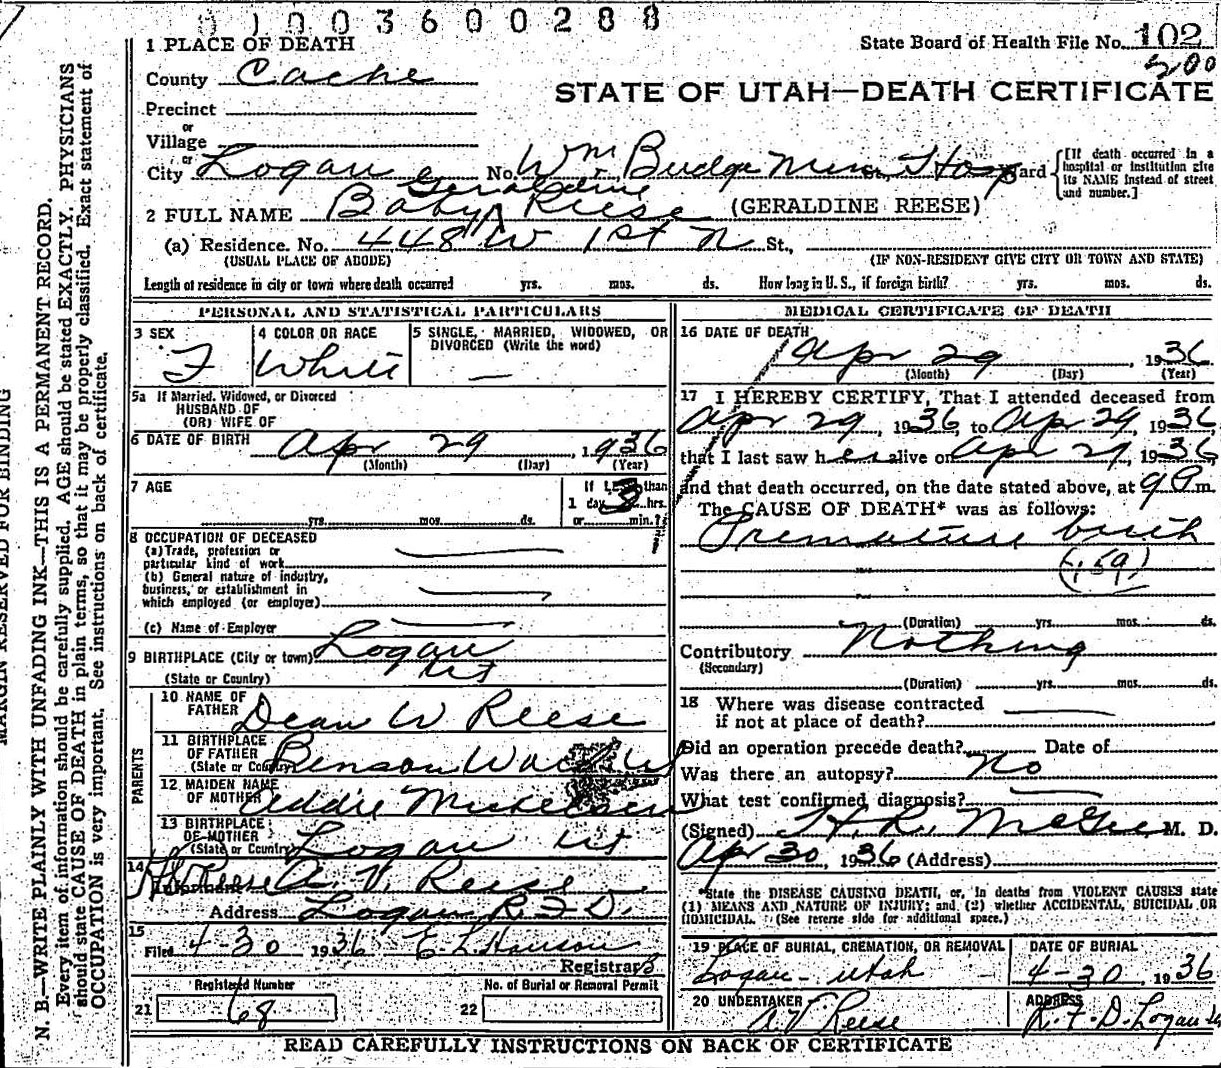 0100360 0288
1 PLACE OF DEATH
State Board of Health File No. 102
200
County Cache
STATE OF UTAH—DEATH CERTIFICATE
Precinct
or
Village
or
City Logan No. Wm Budge Mem St., Hosp Ward
[If death occurred in a hospital or institution give its NAME instead of street and number.]
Geraldine
2 FULL NAME Baby Reese (GERALDINE REESE)
(a) Residence. No. 448 W 1st N St.,
(USUAL PLACE OF ABODE) (IF NON-RESIDENT GIVE CITY OR TOWN AND STATE)
Length of residence in city or town where death occurred yrs. mos. ds. How long in U. S., if foreign birth? yrs. mos. ds.
PERSONAL AND STATISTICAL PARTICULARS
3 SEX
F
4 COLOR OR RACE
White
5 SINGLE, MARRIED, WIDOWED, OR DIVORCED (Write the word)
—
5a If Married, Widowed, or Divorced
HUSBAND OF
(OR) WIFE OF
6 DATE OF BIRTH Apr 29, 1936
(Month) (Day) (Year)
7 AGE
yrs. mos. ds.
If LESS than
1 day 3 hrs.
or min.?
8 OCCUPATION OF DECEASED
(a) Trade, profession or
particular kind of work
(b) General nature of industry,
business, or establishment in
which employed (or employer)
(c) Name of Employer
9 BIRTHPLACE (City or town) Logan
(State or Country) Ut
PARENTS
10 NAME OF FATHER Dean W Reese
11 BIRTHPLACE OF FATHER
(State or Country) Benson Ward
12 MAIDEN NAME OF MOTHER Addie
13 BIRTHPLACE OF MOTHER
(State or Country) Logan Ut
14
Informant A. V. Reese
Address Logan R.F.D.
15
Filed 4-30 1936 E L Hanson
Registrar
Registered Number
21 68
No. of Burial or Removal Permit
22
MEDICAL CERTIFICATE OF DEATH
16 DATE OF DEATH
Apr 29, 1936
(Month) (Day) (Year)
17 I HEREBY CERTIFY, That I attended deceased from
Apr 29, 1936, to Apr 29, 1936,
that I last saw her alive on Apr 29, 1936
and that death occurred, on the date stated above, at 9 P m.
The CAUSE OF DEATH* was as follows:
Premature birth
(159)
(Duration) yrs. mos. ds.
Contributory Nothing
(Secondary)
(Duration) yrs. mos. ds.
18 Where was disease contracted
if not at place of death?
Did an operation precede death? Date of
Was there an autopsy? No
What test confirmed diagnosis?
(Signed) H. R. McGee M. D.
Apr 30, 1936 (Address)
*State the DISEASE CAUSING DEATH, or, in deaths from VIOLENT CAUSES state
(1) MEANS AND NATURE OF INJURY; and (2) whether ACCIDENTAL, SUICIDAL OR
HOMICIDAL. (See reverse side for additional space.)
19 PLACE OF BURIAL, CREMATION, OR REMOVAL
Logan - Utah
DATE OF BURIAL
4-30 1936
20 UNDERTAKER
A V Reese
ADDRESS
R.F.D. Logan
READ CAREFULLY INSTRUCTIONS ON BACK OF CERTIFICATE
MARGIN RESERVED FOR BINDING
N. B.—WRITE PLAINLY WITH UNFADING INK—THIS IS A PERMANENT RECORD.
Every item of information should be carefully supplied. AGE should be stated EXACTLY. PHYSICIANS
should state CAUSE OF DEATH in plain terms, so that it may be properly classified. Exact statement of
OCCUPATION is very important. See instructions on back of certificate.